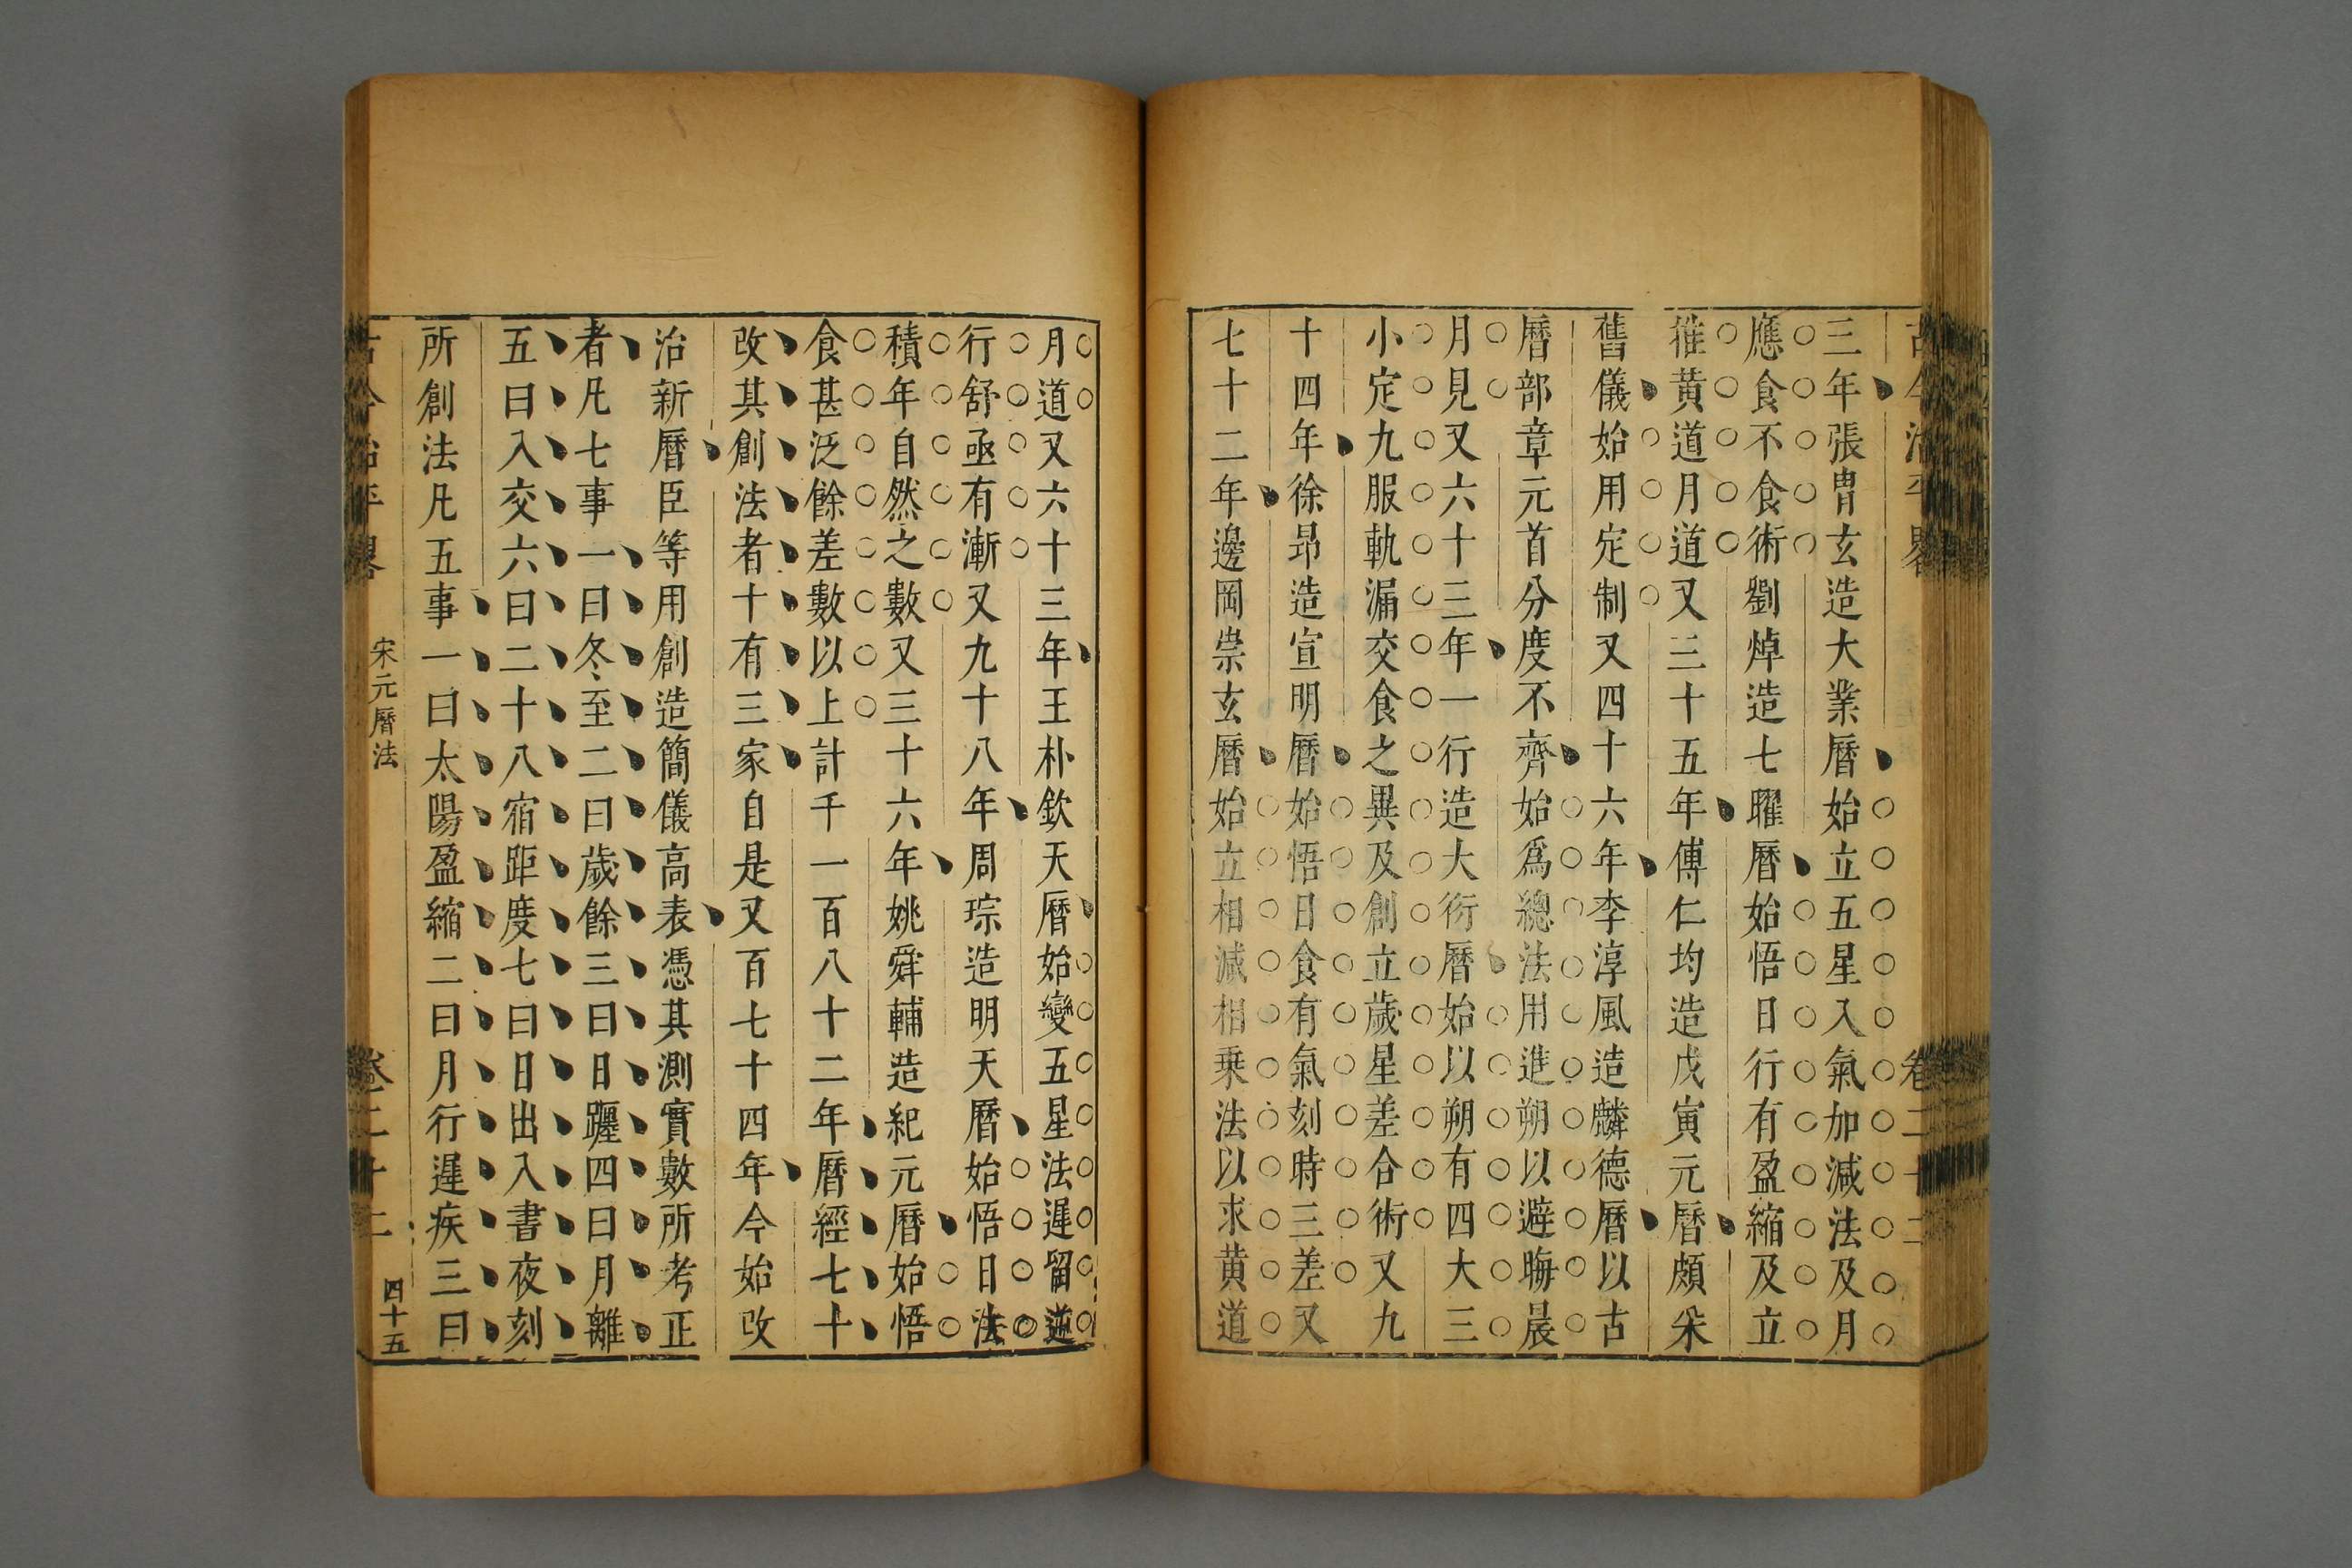 三年張胄玄造大業曆始立五星入氣加減法及月
應食不食術劉焯造七曜曆始悟日行有盈縮及立
推黃道月道又三十五年傅仁均造戊寅元曆頗采
舊儀始用定制又四十六年李淳風造麟德曆以古
曆部章元首分度不齊始爲總法用進朔以避晦晨
月見又六十三年一行造大衍曆始以朔有四大三
小定九服軌漏交食之異及創立歲星差合術又九
十四年徐昂造宣明曆始悟日食有氣刻時三差又
七十二年邊岡崇玄曆始立相減相乗法以求黃道
月道又六十三年王朴欽天曆始變五星法遲留逆
行舒亟有漸又九十八年周琮造明天曆始悟日法
積年自然之數又三十六年姚舜輔造紀元曆始悟
食甚泛餘差數以上計千一百八十二年曆經七十
改其創法者十有三家自是又百七十四年今始改
治新曆臣等用創造簡儀高表憑其測實數所考正
者凡七事一曰冬至二曰歲餘三曰日躔四曰月離
五曰入交六曰二十八宿距度七曰日出入書夜刻
所創法凡五事一曰太陽盈縮二曰月行遲疾三曰
古今治平畧
宋元曆法
卷二十二
四十五